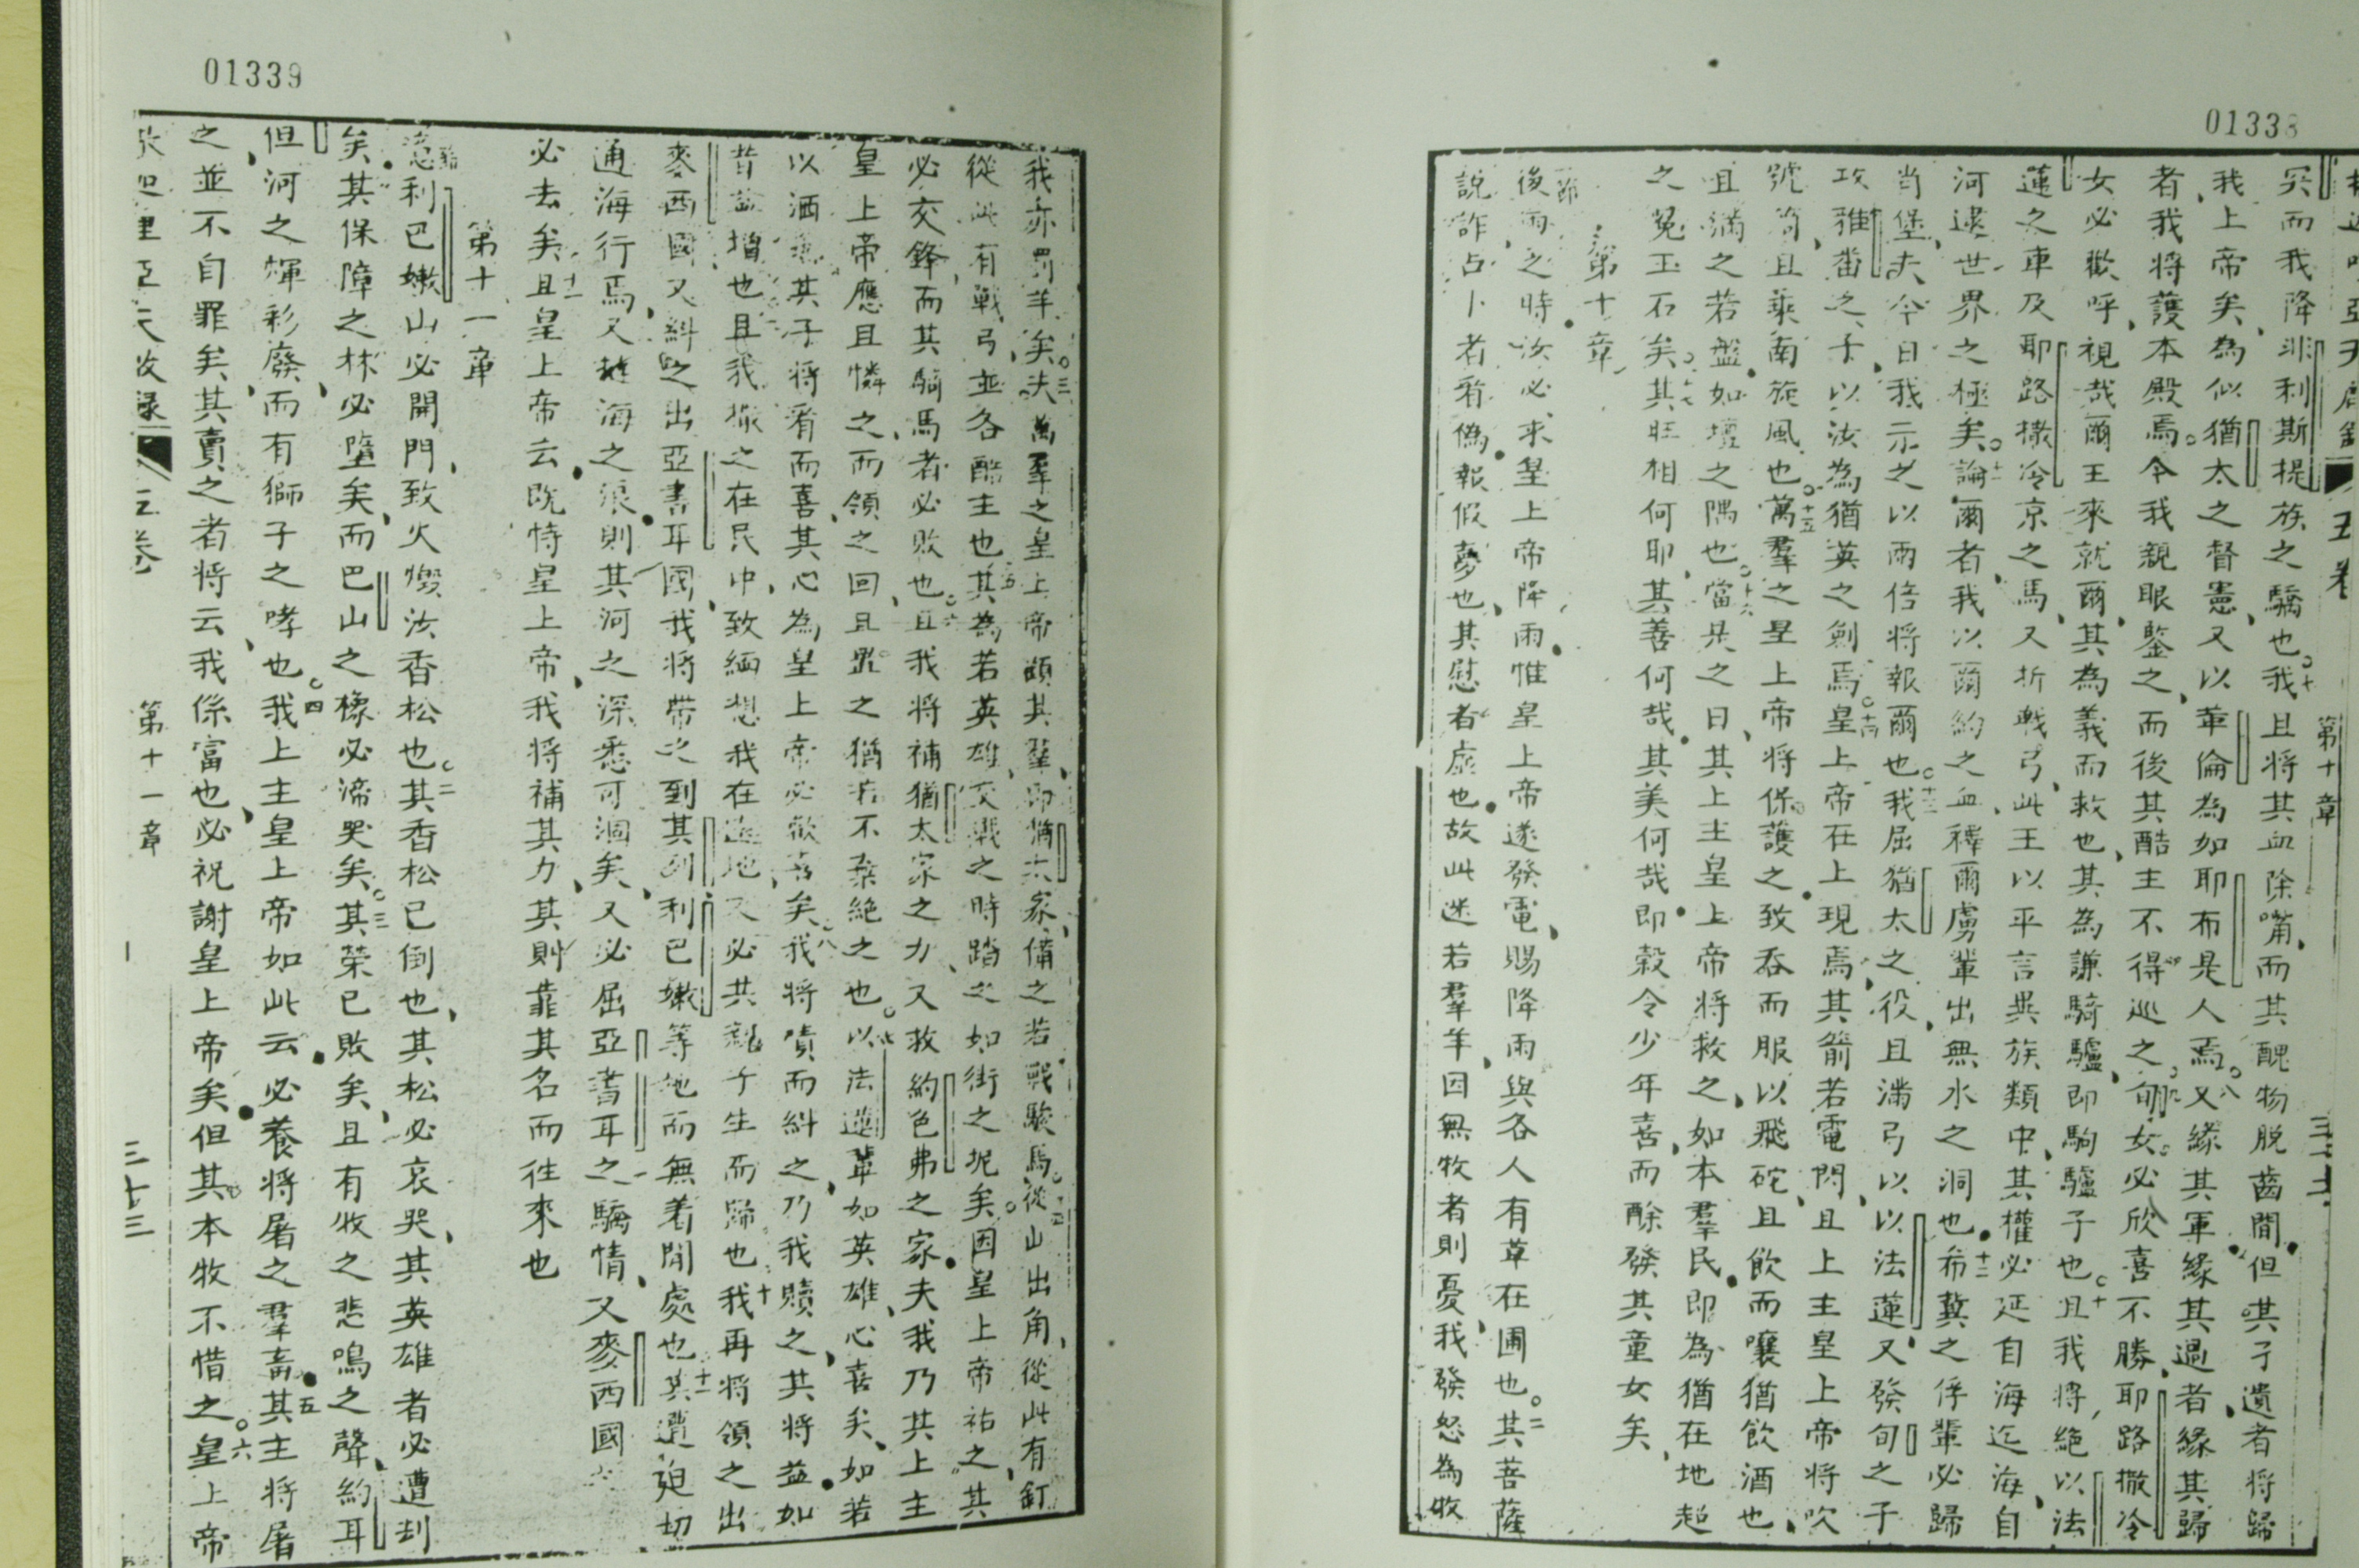 01338
五卷
第十章
冥而我降非利斯提族之驕也○十我且將其血除嘴而其醜物脫齒間但其孑遺者將歸
我上帝矣為似猶太之督憲又以革倫為如耶布是人焉○八又緣其軍緣其過者緣其歸
者我將護本殿焉今我親眼鑒之而後其酷主不得巡之旬女必欣喜不勝耶路撒冷
女必歡呼視哉爾王來就爾其為義而救也其為謙騎驢即駒驢子也○十且我將絶以法
蓮之車及耶路撒冷京之馬又折戰弓此王以平言與族類中其權必延自海迄海自
河逮世界之極矣○十一論爾者我以爾約之血釋爾虜輩出無水之洞也十二希冀之俘輩必歸
當堡夫今日我示之以兩倍將報爾也○十三我屈猶太之役且滿弓以以法蓮又發旬之子
攻雅番之子以汝為猶英之劍焉○十四皇上帝在上現焉其箭若電閃且上主皇上帝將吹
號筒且乘南旋風也○十五萬羣之皇上帝將保護之致吞而服以飛砣且飲而嚷猶飲酒也
且滿之若盤如壇之隅也○十六當是之日其上主皇上帝將救之如本羣民即為猶在地起
之冕玉石矣○十七其旺相何耶其善何哉其美何哉即穀令少年喜而酴發其童女矣
第十章
一節後雨之時汝必求皇上帝降雨惟皇上帝遂發電賜降雨與各人有草在圃也○二其菩薩
說詐占卜者看偽報假夢也其慰者虛也故此迷若羣羊因無牧者則憂我發怒為牧
01339
我亦罰羊矣○三夫萬羣之皇上帝顧其羣即猶太家備之若戰駿馬○四從山出角從此有釘
從此有戰弓並各酷主也○五其為若英雄交戰之時踏之如街之坭矣因皇上帝祐之其
必交鋒而其騎馬者必敗也○六且我將補猶太家之力又救約色弗之家夫我乃其上主
皇上帝應且憐之而領之回且之猶若不棄絶之也○七以法蓮輩如英雄心喜矣如若
以酒焉其子將看而喜其心為皇上帝必歡喜矣○八我將嘖而糾之乃我贖之其將益如
昔益增也且我撒之在民中致緬想我在遠地又必共親子生而歸也十我再將領之出
麥西國又糾之出亞書耳國我將帶之到其列利巴嫩等地而無着閒處也十一其遭迫切
通海行焉又撻海之浪則其河之深悉可涸矣又必屈亞書耳之驕情又麥西國
必去矣十二且皇上帝云既恃皇上帝我將補其力其則靠其名而往來也
第十一章
利巴嫩山必開門致火燬汝香松也○二其香松已倒也其松必哀哭其英雄者必遭刦
矣其保障之林必墮矣而巴山之橡必渧哭矣○三其榮已敗矣且有牧之悲鳴之聲約耳
但河之輝彩廢而有獅子之哮也○四我上主皇上帝如此云必養將屠之羣畜五其主將屠
之並不自罪矣其賣之者將云我係富也必祝謝皇上帝矣但其本牧不惜之○六皇上帝
第十一章
三十三